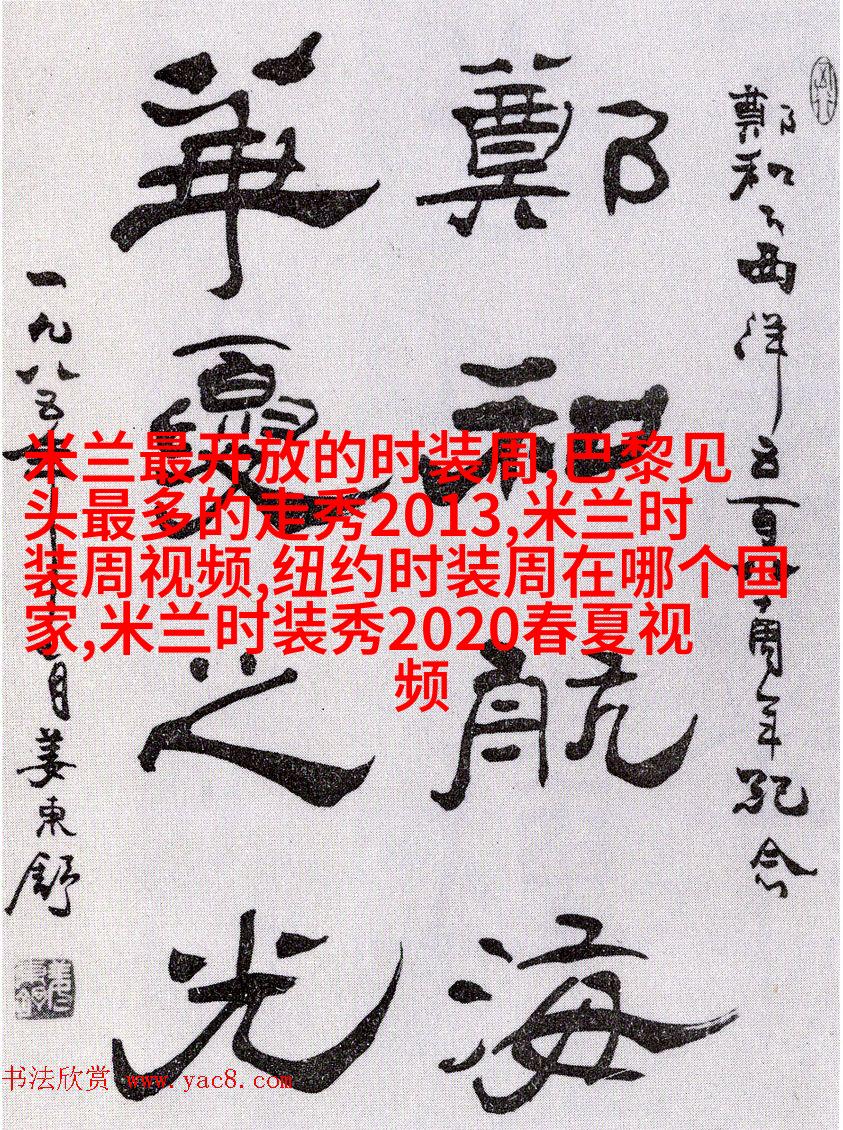 鄭和下西洋五百八十周年紀念
鄭和航海
華夏之光
一九八五年十一月姜東舒
米兰最开放的时装周,巴黎见
头最多的走秀2013,米兰时
装周视频,纽约时装周在哪个国
家,米兰时装秀2020春夏视
频
书法欣赏 www.yac8.com